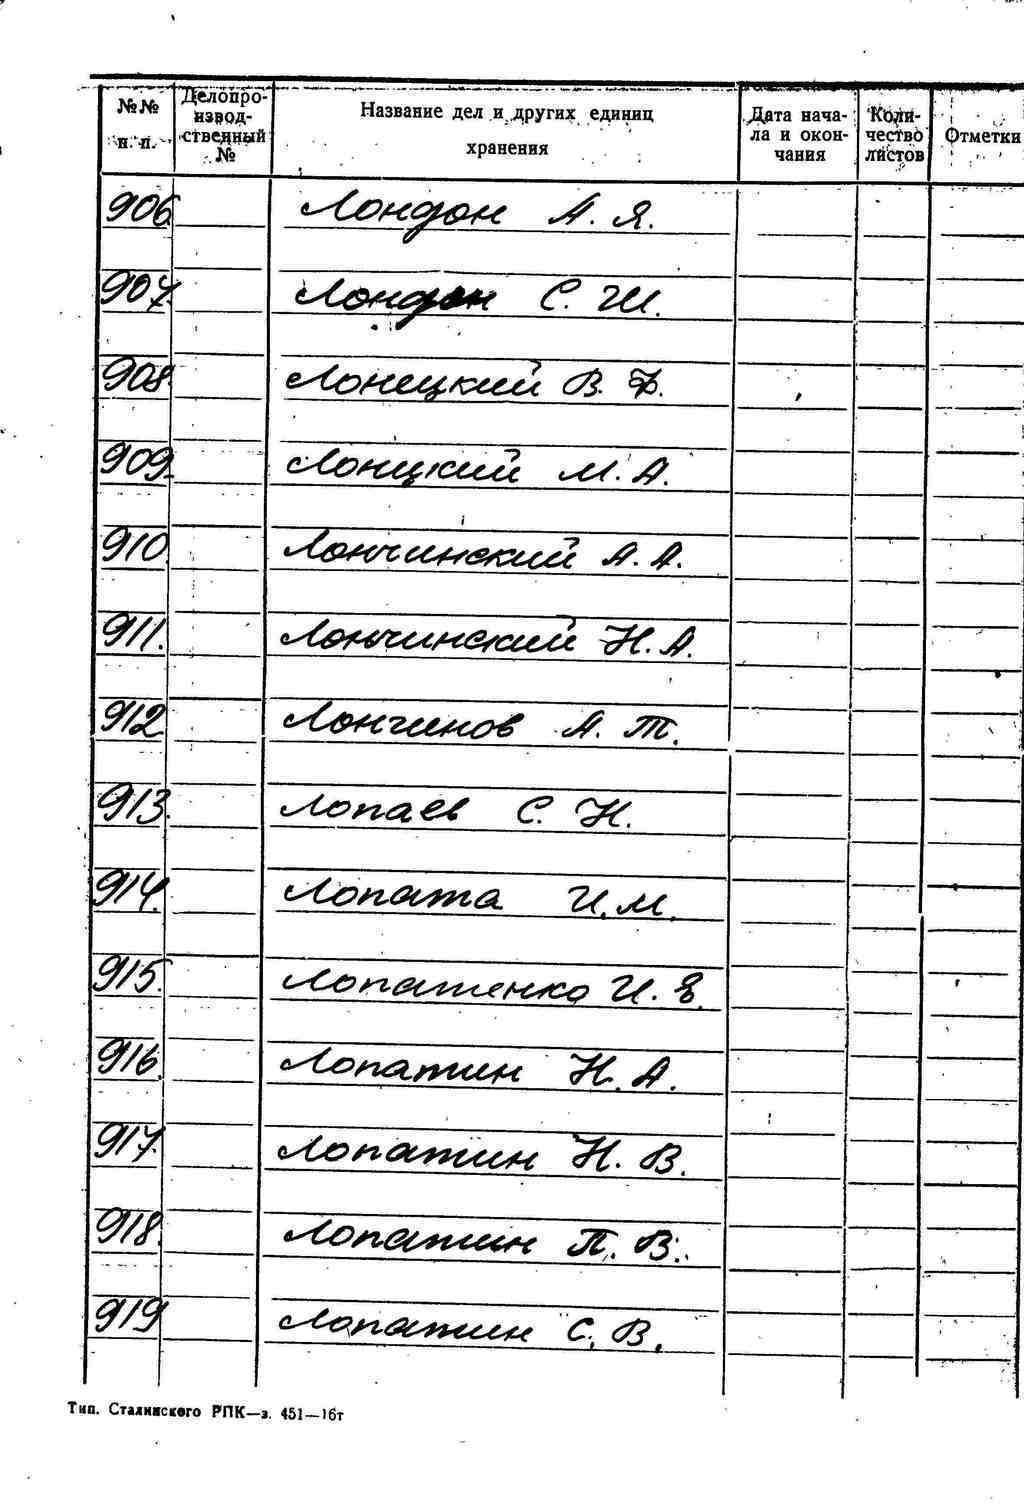 №№ н. п. Делопроизводственный № Название дел и других единиц хранения Дата начала и окончания Количество листов Отметки
906 Лондон А. Я.
907. Лондон С. Ш.
908. Лонецкий В. Ф.
909. Лонцкий М. А.
910. Лончинский А. А.
911. Лончинский Н. А.
912 Лончинов А. Т.
913. Лопаев С. Н.
914. Лопата И. М.
915. Лопатенко И. Я.
916. Лопатин Н. А.
917. Лопатин Н. В.
918. Лопатин П. В.
919 Лопатин С. В.
Тип. Сталинского РПК—з. 451—16т